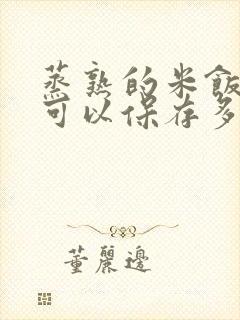 蒸熟的米飯
可以保存多
董麗邊